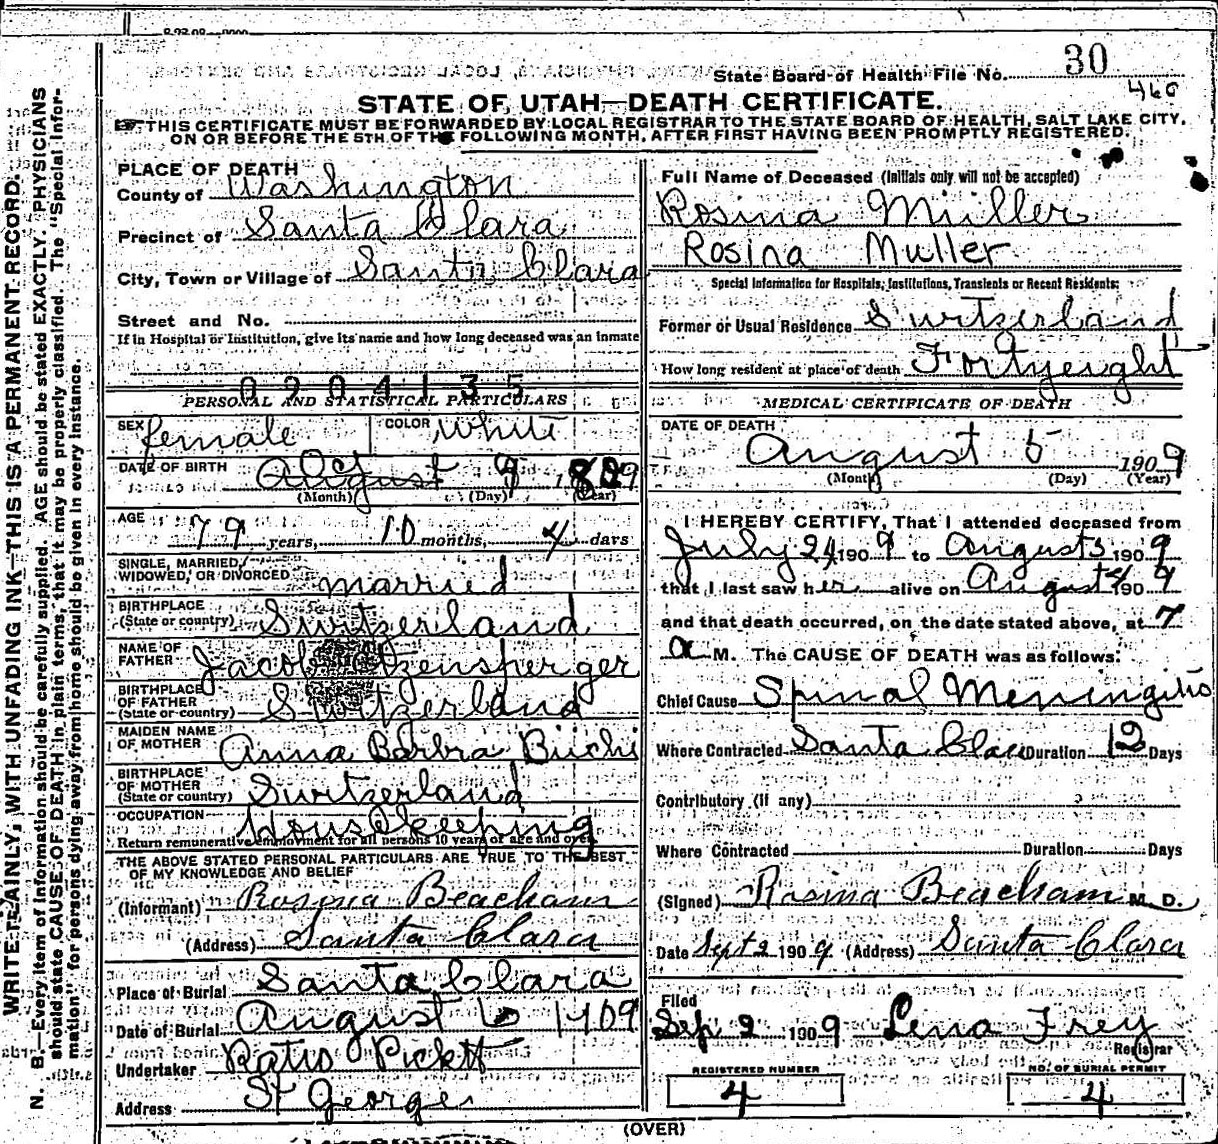 State Board of Health File No. 30
460
STATE OF UTAH—DEATH CERTIFICATE.
THIS CERTIFICATE MUST BE FORWARDED BY LOCAL REGISTRAR TO THE STATE BOARD OF HEALTH, SALT LAKE CITY,
ON OR BEFORE THE 5TH OF THE FOLLOWING MONTH, AFTER FIRST HAVING BEEN PROMPTLY REGISTERED.
WRITE PLAINLY, WITH UNFADING INK—THIS IS A PERMANENT RECORD.
N. B.—Every item of information should be carefully supplied. AGE should be stated EXACTLY. PHYSICIANS
should state CAUSE OF DEATH in plain terms, that it may be properly classified. The "Special Infor-
mation" for persons dying away from home should be given in every instance.
PLACE OF DEATH
County of Washington
Precinct of Santa Clara
City, Town or Village of Santa Clara
Street and No.
If in Hospital or Institution, give its name and how long deceased was an inmate
0204135
PERSONAL AND STATISTICAL PARTICULARS
SEX female COLOR White
DATE OF BIRTH August Oct 9 1829
(Month) (Day) (Year)
AGE 79 years, 10 months, 4 days
SINGLE, MARRIED,
WIDOWED, OR DIVORCED married
BIRTHPLACE
(State or country) Switzerland
NAME OF
FATHER Jacob
BIRTHPLACE
OF FATHER
(State or country) Switzerland
MAIDEN NAME
OF MOTHER Anna Barbra Buchi
BIRTHPLACE
OF MOTHER
(State or country) Switzerland
OCCUPATION Housekeeping
Return remunerative employment for all persons 10 years of age and over.
THE ABOVE STATED PERSONAL PARTICULARS ARE TRUE TO THE BEST
OF MY KNOWLEDGE AND BELIEF
(Informant) Rosina Beacham
(Address) Santa Clara
Place of Burial Santa Clara
Date of Burial August 6 1909
Undertaker Pickett
Address St George
Full Name of Deceased (Initials only will not be accepted)
Rosina Müller
Rosina Muller
Special Information for Hospitals, Institutions, Transients or Recent Residents:
Former or Usual Residence Switzerland
How long resident at place of death Fortyeight
MEDICAL CERTIFICATE OF DEATH
DATE OF DEATH
August 5 1909
(Month) (Day) (Year)
I HEREBY CERTIFY, That I attended deceased from
July 24 1909 to August 5 1909
that I last saw her alive on August 4 1909
and that death occurred, on the date stated above, at 7
a M. The CAUSE OF DEATH was as follows:
Chief Cause Spinal Meningitis
Where Contracted Santa Clara Duration 12 Days
Contributory (if any)
Where Contracted Duration Days
(Signed) Rosina Beacham M. D.
Date Sept 2 1909 (Address) Santa Clara
Filed
Sep 2 1909 Lena Frey
Registrar
REGISTERED NUMBER
4
NO. OF BURIAL PERMIT
4
(OVER)